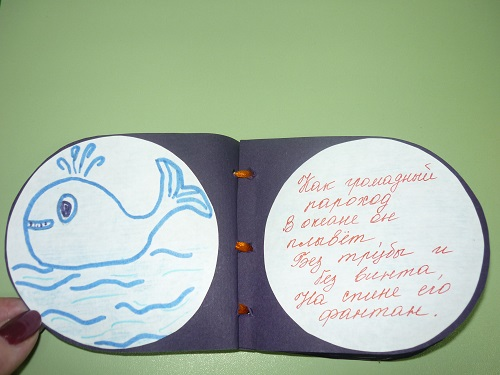 Как громадный
пароход
В океане он
плывёт
Без трубы и
без винта,
На спине его
фантан.